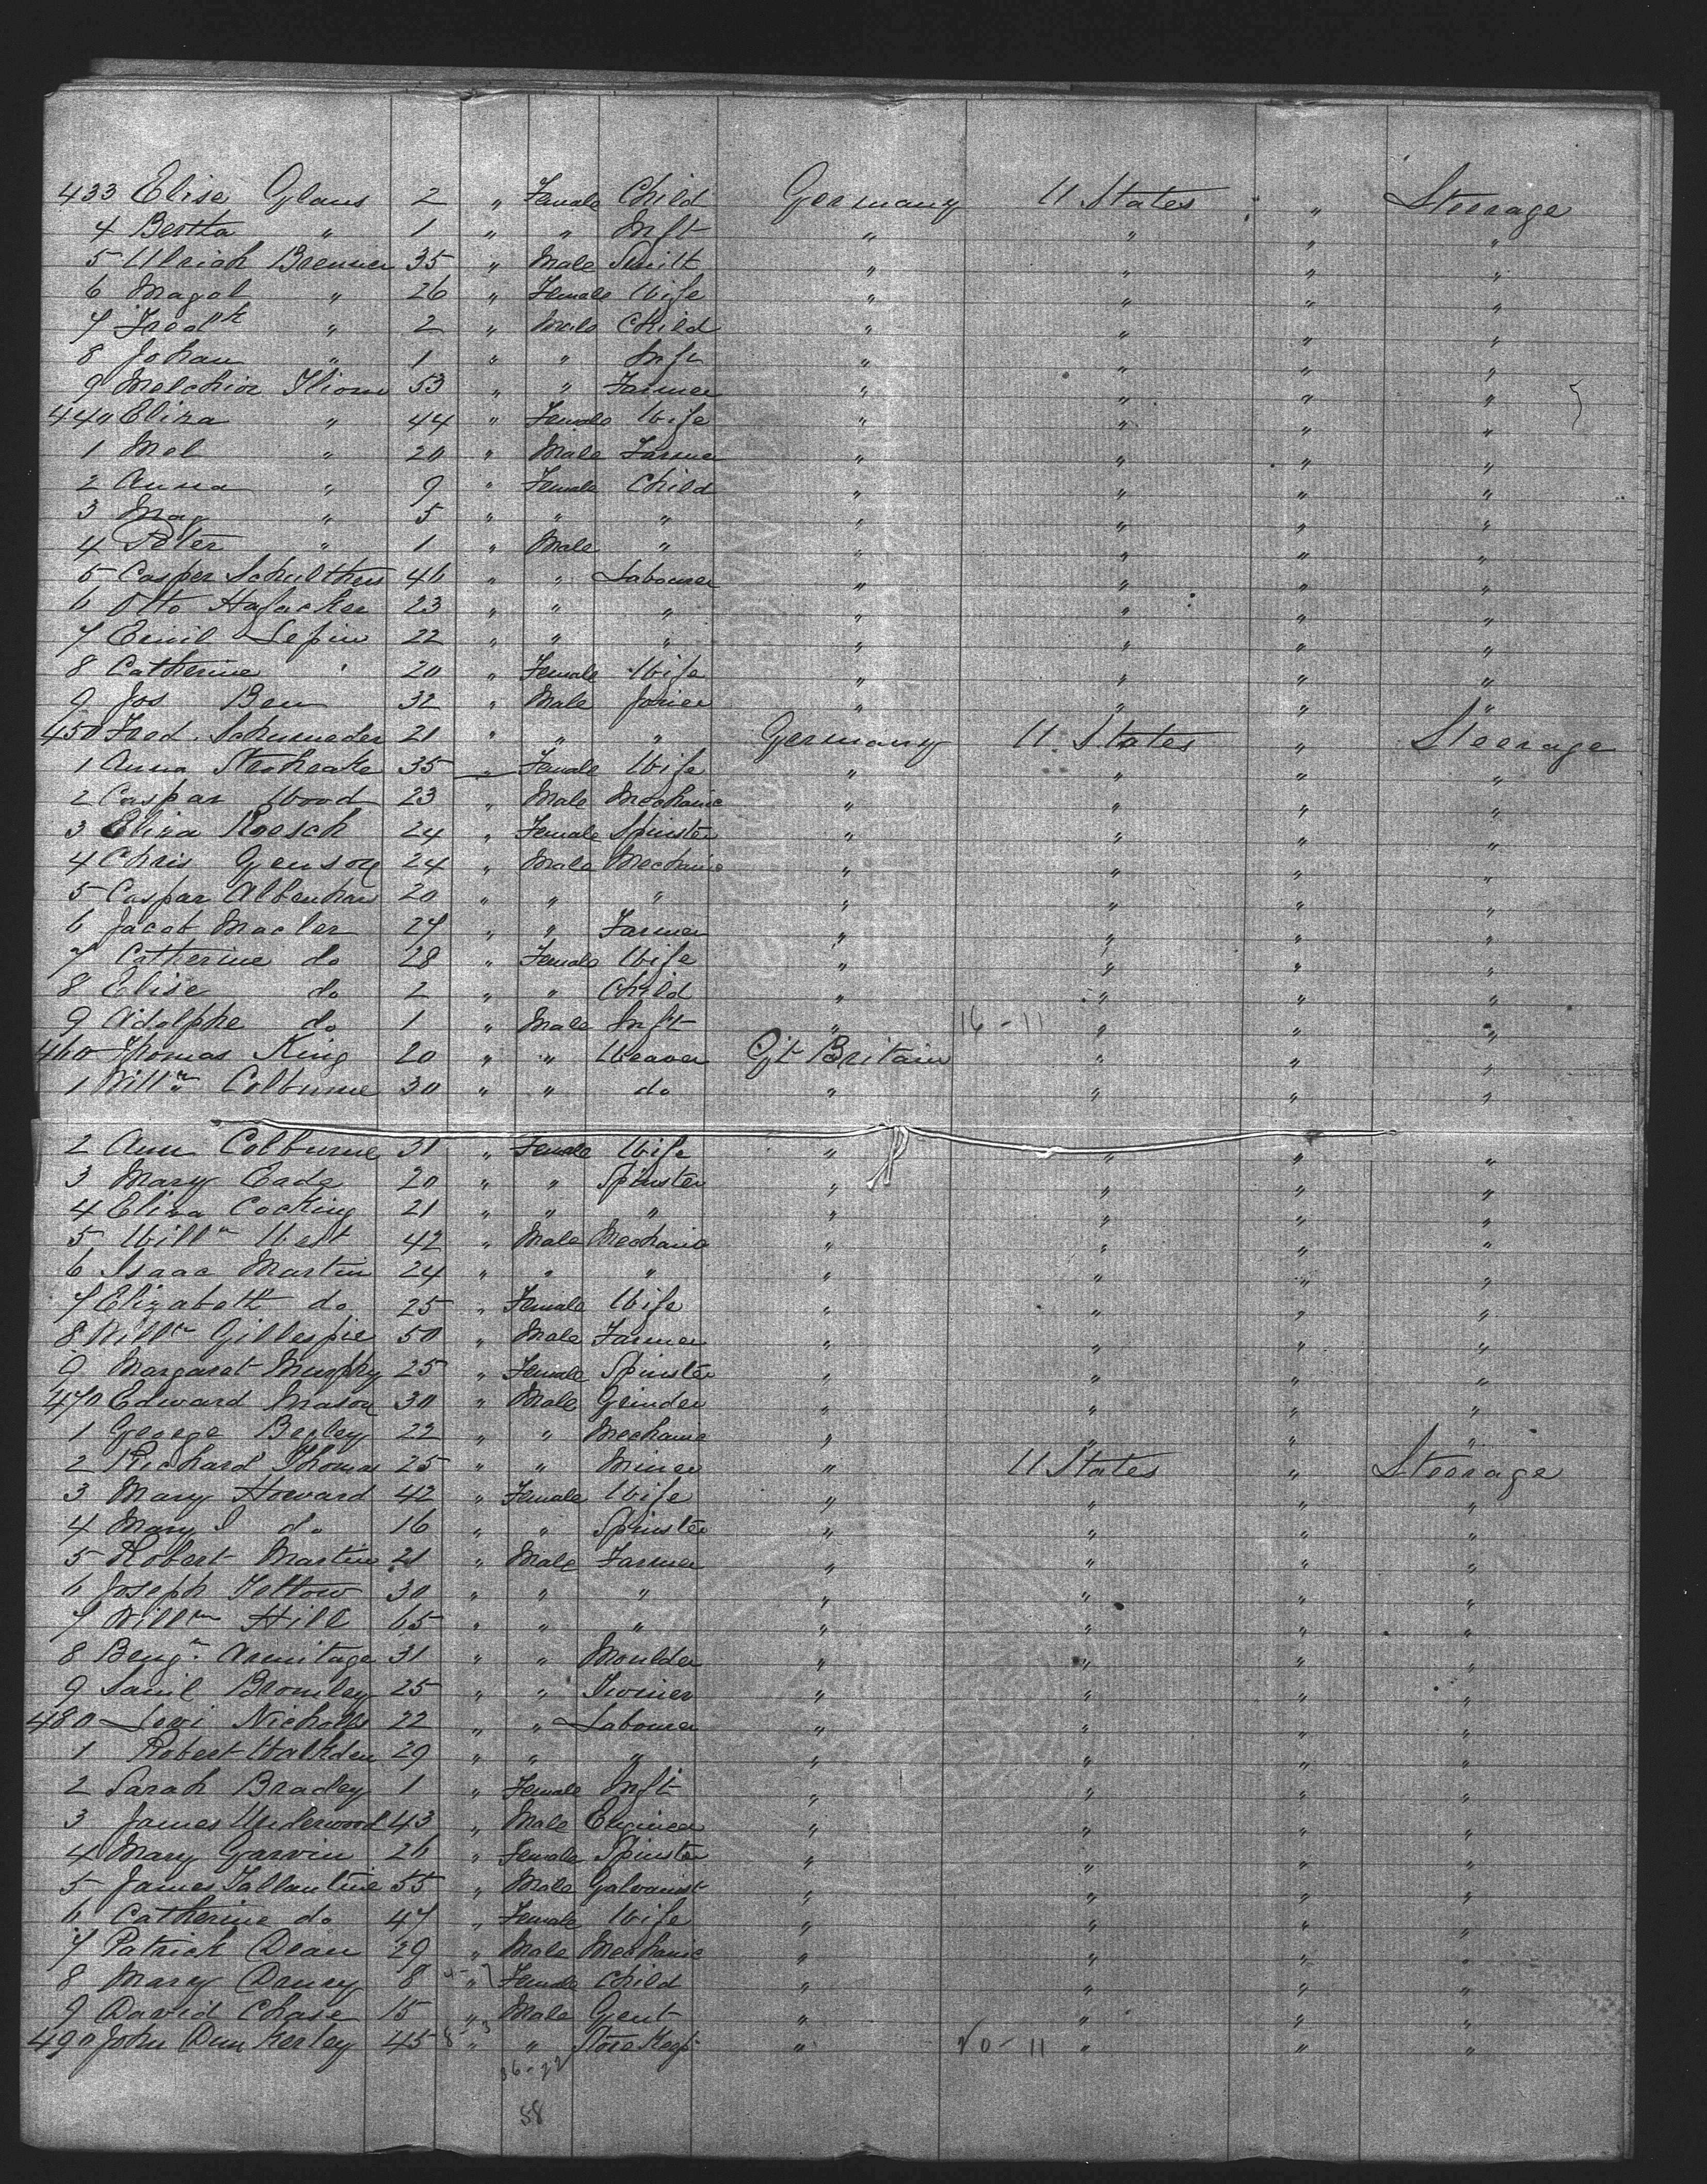 433 Elise Glaus 2 " Female Child Germany U States " Steerage
4 Bertha " 1 " " Inft " " " "
5 Ulrich Brenner 35 " Male Smith " " " "
6 Magal " 26 " Female Wife " " " "
7 Fredk " 2 " Male Child " " " "
8 Johan " 1 " " Inft " " " "
9 Melchior 53 " " Farmer " " " "
440 Eliza " 44 " Female Wife " " " "
1 Mel " 20 " Male Farmer " " " "
2 Anna " 9 " Female Child " " " "
3 Mag " 5 " " " " " " "
4 Peter " 1 " Male " " " " "
5 Casper Schulthess 46 " " Labourer " " " "
6 Otto Hafacker 23 " " " " " " "
7 Emil Lepin 22 " " " " " " "
8 Catherine " 20 " Female Wife " " " "
9 Jos Ben 32 " Male Joiner " " " "
450 Fred. Schumeder 21 " " " Germany U. States " Steerage
1 Anna 35 " Female Wife " " " "
2 Caspar Wood 23 " Male Mechanic " " " "
3 Eliza Roesch 24 " Female Spinster " " " "
4 Chris Genson 24 " Male Mechanic " " " "
5 Caspar Albenhar 20 " " " " " " "
6 Jacob Macler 27 " " Farmer " " " "
7 Catherine do 28 " Female Wife " " " "
8 Elise do 2 " " Child " " " "
9 Adolphe do 1 " Male Inft " 16-11 " " "
460 Thomas King 20 " " Weaver Gt Britain " " "
1 Willm Colburne 30 " " do " " " "
2 Ann Colburne 31 " Female Wife " " " "
3 Mary Eade 20 " " Spinster " " " "
4 Eliza Cocking 21 " " " " " " "
5 Willm West 42 " Male Mechanic " " " "
6 Isaac Martin 24 " " " " " " "
7 Elizabeth do 25 " Female Wife " " " "
8 Willm Gillespie 50 " Male Farmer " " " "
9 Margaret Murphy 25 " Female Spinster " " " "
470 Edward Mason 30 " Male Grinder " " " "
1 George Begley 22 " " Mechanic " " " "
2 Richard Thomas 25 " " Miner " U States " Steerage
3 Mary Howard 42 " Female Wife " " " "
4 Mary J do 16 " " Spinster " " " "
5 Robert Martin 21 " Male Farmer " " " "
6 Joseph Tettow 30 " " " " " " "
7 Willm Hill 65 " " " " " " "
8 Benjn Armitage 31 " " Moulder " " " "
9 Saml Bromley 25 " " " " " "
480 Levi Nicholls 22 " " Labourer " " " "
1 Robert Walkden 29 " " " " " " "
2 Sarah Bradey 1 " Female Inft " " " "
3 James Underwood 43 " Male Engineer " " " "
4 Mary Garvin 26 " Female Spinster " " " "
5 James Tallantine 55 " Male Galvanist " " " "
6 Catherine do 47 " Female Wife " " " "
7 Patrick Dean 29 " Male Mechanic " " " "
8 Mary Drury 8 " Female Child " " " "
9 David Chase 15 " Male Gent " " " "
490 John Dunkerley 45 " " Store Keepr " 20-11 " " "
36-22
58